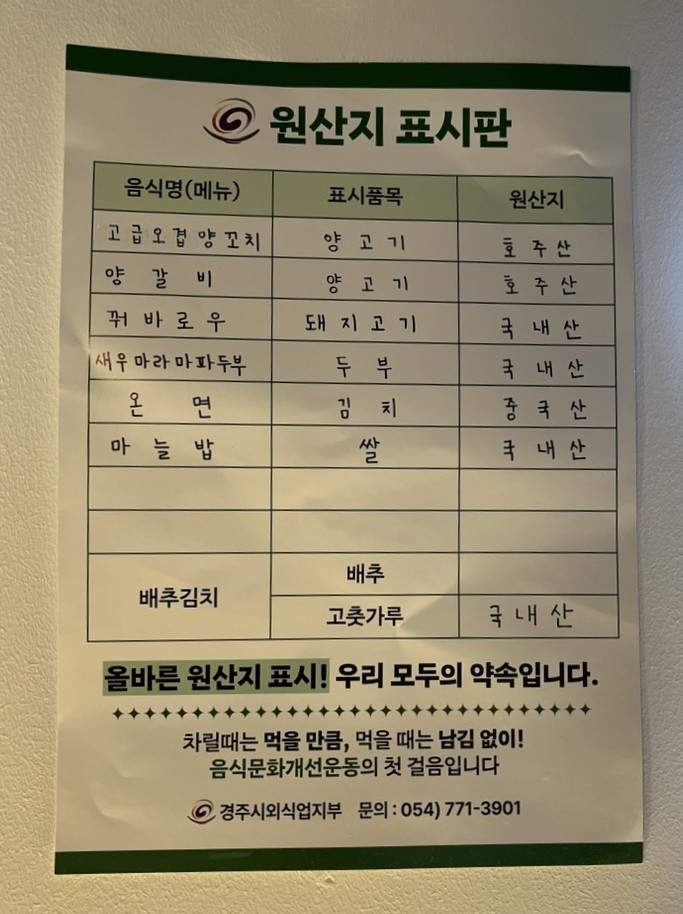 원산지 표시판
음식명(메뉴) 표시품목 원산지
고급오겹양꼬치 양고기 호주산
양갈비 양고기 호주산
꿔바로우 돼지고기 국내산
새우마라마파두부 두부 국내산
온면 김치 중국산
마늘밥 쌀 국내산
배추김치 배추
고춧가루 국내산
올바른 원산지 표시! 우리 모두의 약속입니다.
차릴때는 먹을 만큼, 먹을 때는 남김 없이!
음식문화개선운동의 첫 걸음입니다
경주시외식업지부 문의 : 054) 771-3901